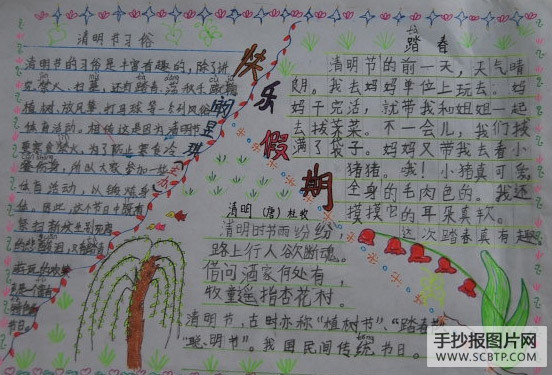 清明节习俗
清明节的习俗是丰富有趣的，除了讲
究禁火、扫墓，还有踏青、荡秋千、蹴鞠
植树、放风筝、打马球等一系列风俗
体育活动。相传这是因为清明节
要寒食禁火，为了防止寒食冷
所以大家参加一些
体育活动，以锻炼身
体。因此，这个节日中既有
节日。
快乐假期
踏春
tà
清明节的前一天，天气晴
朗。我去妈妈单位上玩去。妈
妈干完活，就带我和姐姐一起
去拔荠菜。不一会儿，我们拔
满了袋子。妈妈又带我去看小
猪猪。哦！小猪真可爱，
全身的毛肉色的。我还
摸摸它的耳朵真软。
这次踏春真有趣
清明（唐）杜牧
清明时节雨纷纷
路上行人欲断魂。
借问酒家何处有，
牧童遥指杏花村。
清明节，古时亦称“植树节”、“踏春节”
“聪明节”。我国民间传统节日。
手抄报图片网
WWW.SCBTP.COM